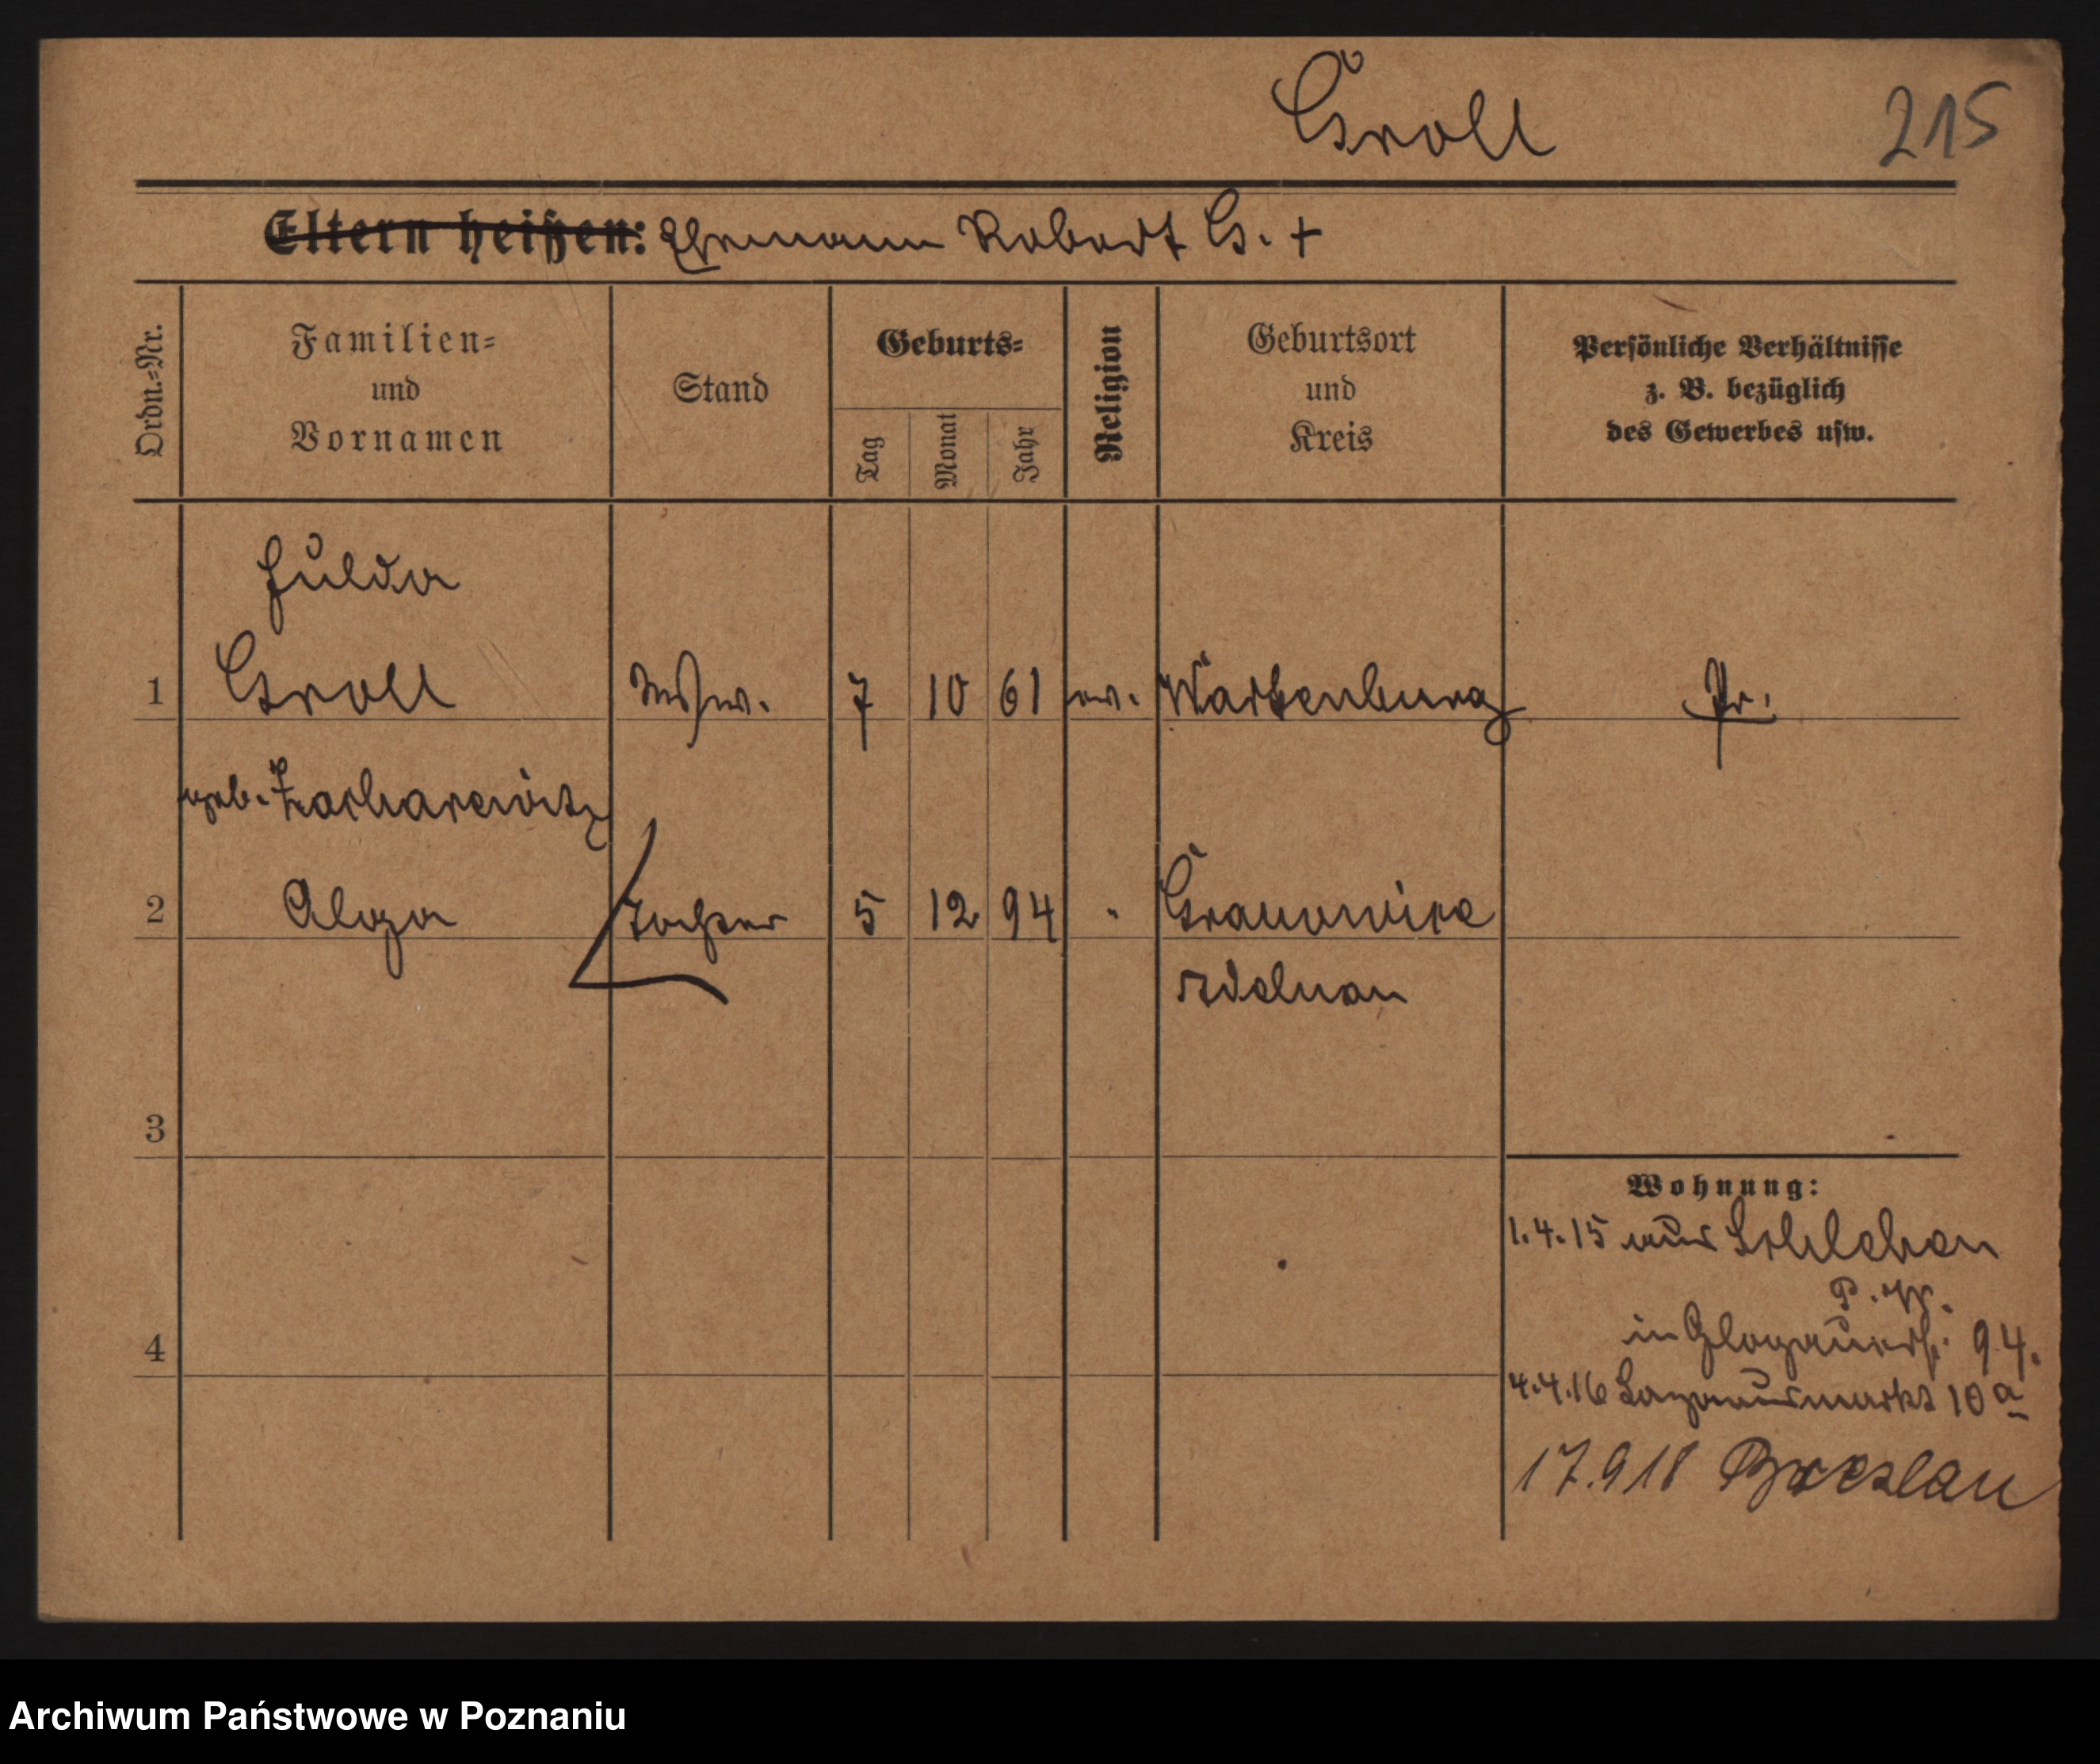 Groll
215
Eltern heißen: Ehemann Robert G. +
Ordn.=Nr.
Familien=
und
Vornamen
Stand
Geburts=
Tag
Monat
Jahr
Religion
Geburtsort
und
Kreis
Persönliche Verhältnisse
z. B. bezüglich
des Gewerbes usw.
Hulda
1 Groll Wwe. 7 10 61 ev. Wartenburg Pr.
geb. Zacharewitz
2 Tochter 5 12 94 " Granowice
Adelnau
3
Wohnung:
1.4.15 aus Schlehen
P. W.
4
in Glogauerst. 94.
4.4.16 10 a
17.9 18 Breslau
Archiwum Państwowe w Poznaniu